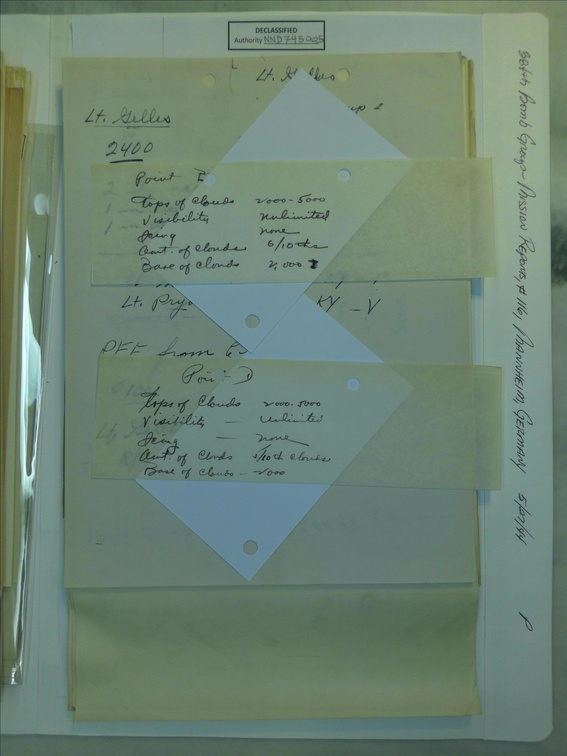 DECLASSIFIED
Authority NND 745005
Lt. Gelles
Lt. Gelles
2400
Point E
Tops of Clouds 2000-5000
Visibility Unlimited
Icing none
Amt. of Clouds 6/10ths
Base of Clouds 2,000
Lt. Pryo KY - V
PFF from
Point D
Tops of Clouds 2000-5000
Visibility - Unlimited
Icing - none
Amt. of Clouds /10th Clouds
Base of Clouds - 2000
Bomb Group - Mission Reports, # 116, Mannheim, Germany 5/27/44 P